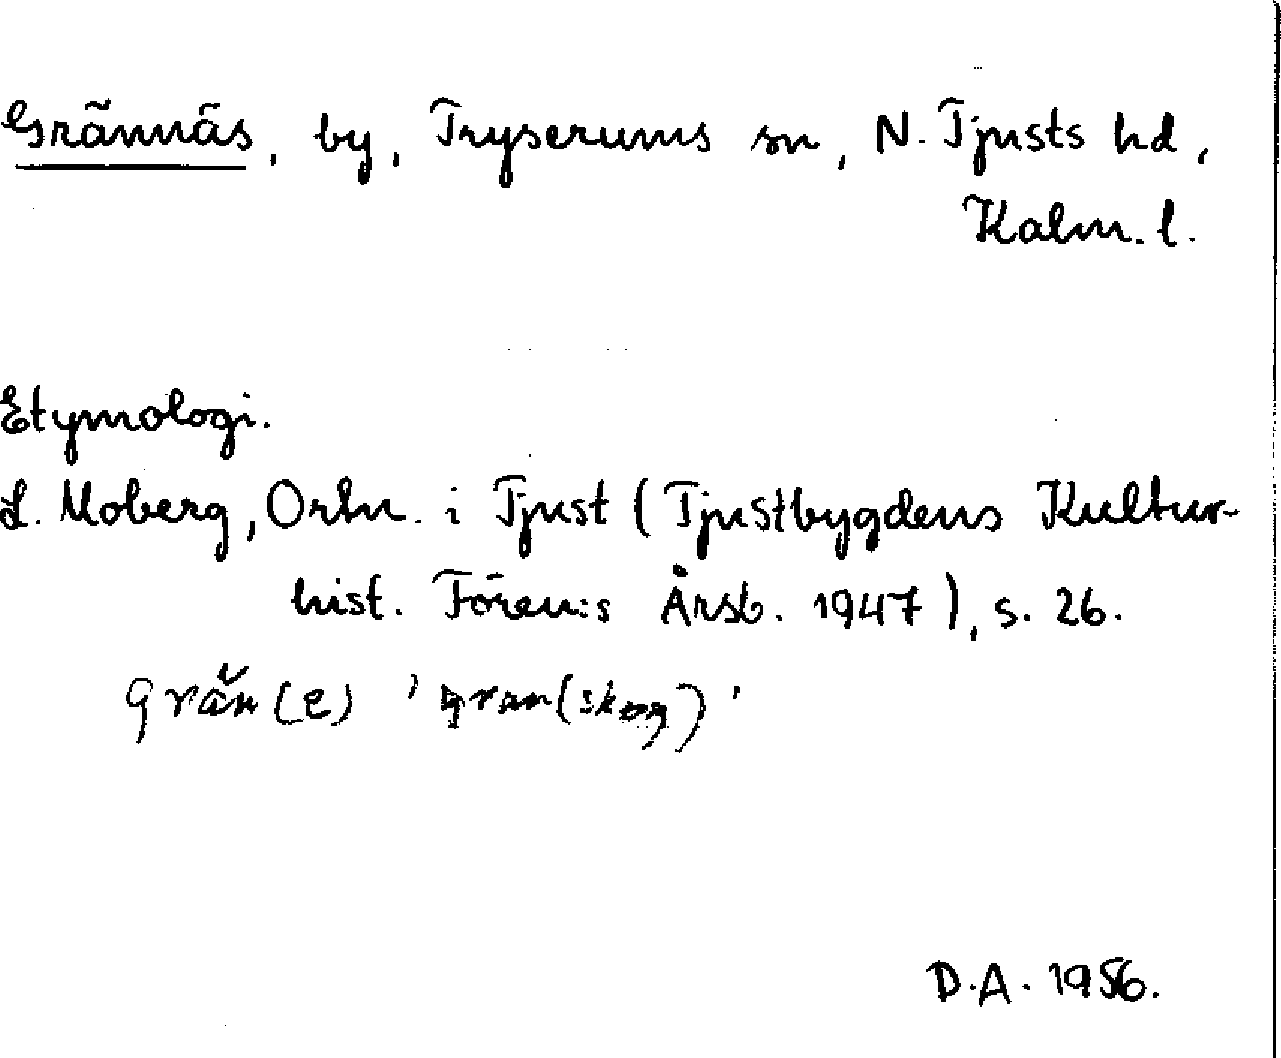 Grännäs, by, Tryserums sn, N. Tjusts hd,
Kalm. l.
Etymologi.
L. Moberg, Ortn. i Tjust (Tjustbygdens Kultur-
hist. Fören:s Årsb. 1947), s. 26.
grän(e) 'gran(skog)'
D.A. 1956.